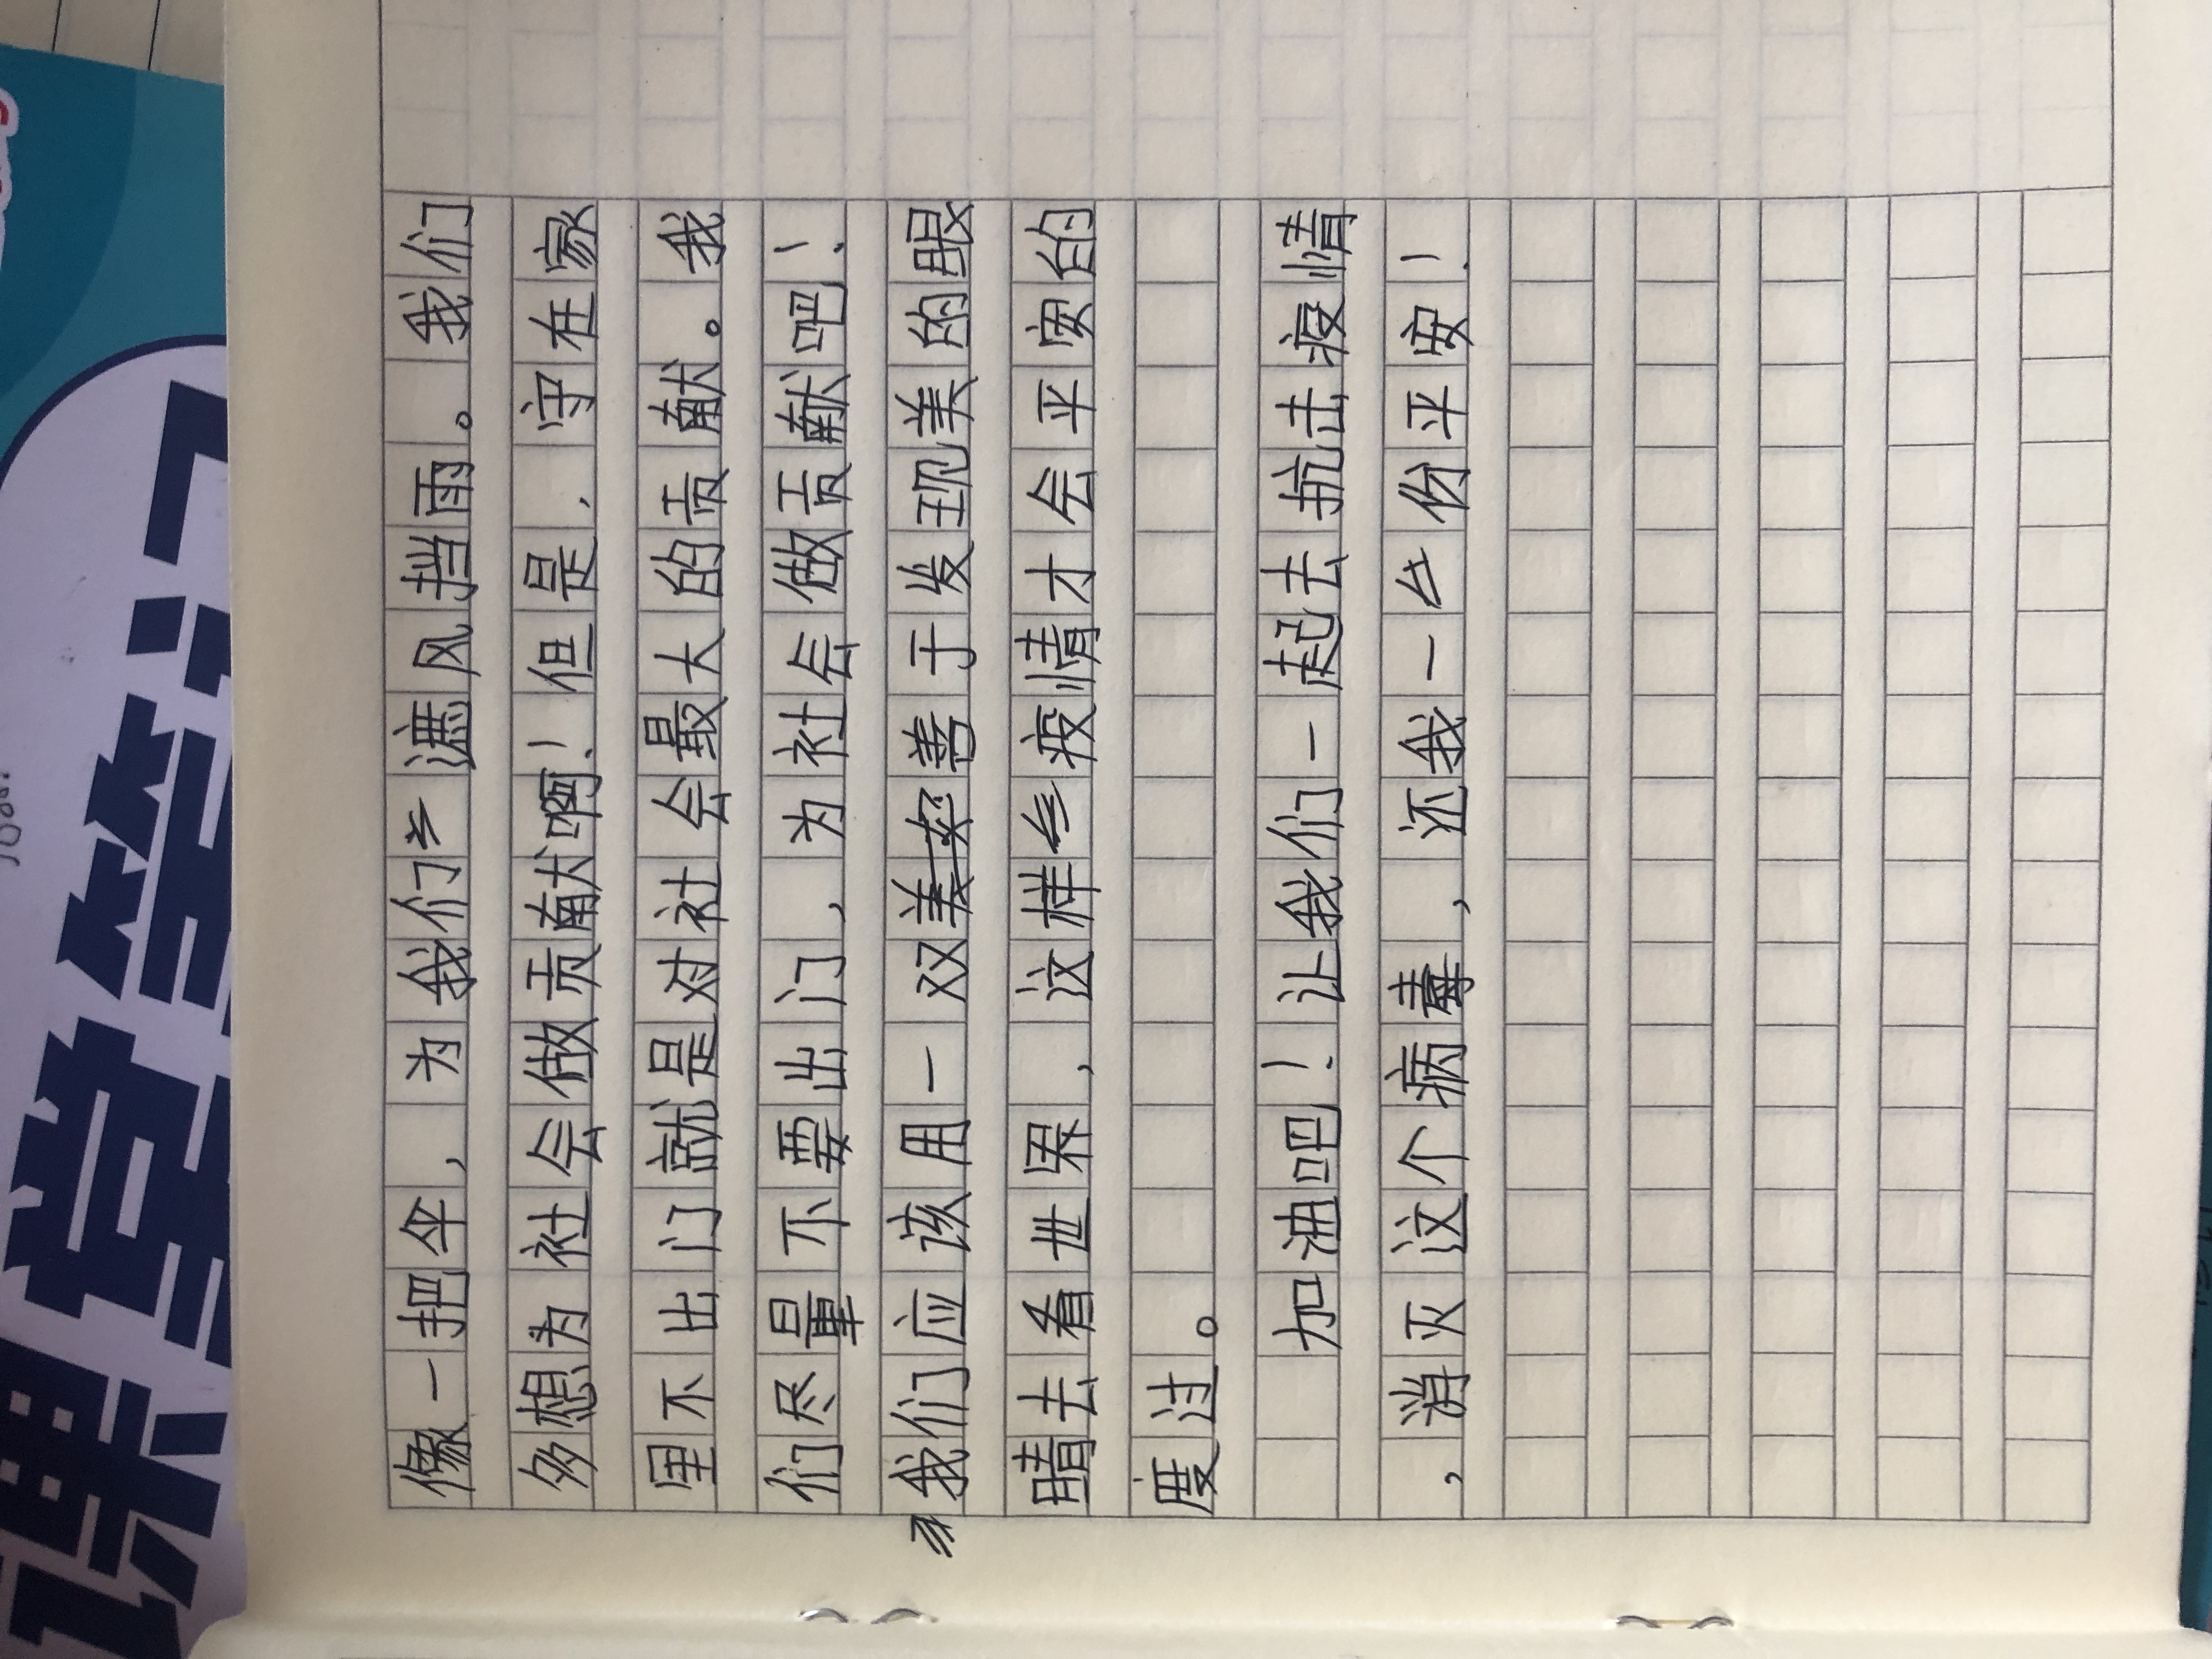 像一把伞，为我们遮风挡雨。我们
多想为社会做贡献啊！但是，守在家
里不出门就是对社会最大的贡献。我
们尽量不要出门，为社会做贡献吧！
我们应该用一双善于发现美的眼
睛去看世界，这样疫情才会平安的
度过。
加油吧！让我们一起去抗击疫情
，消灭这个病毒，还我一份平安！
课堂笔记